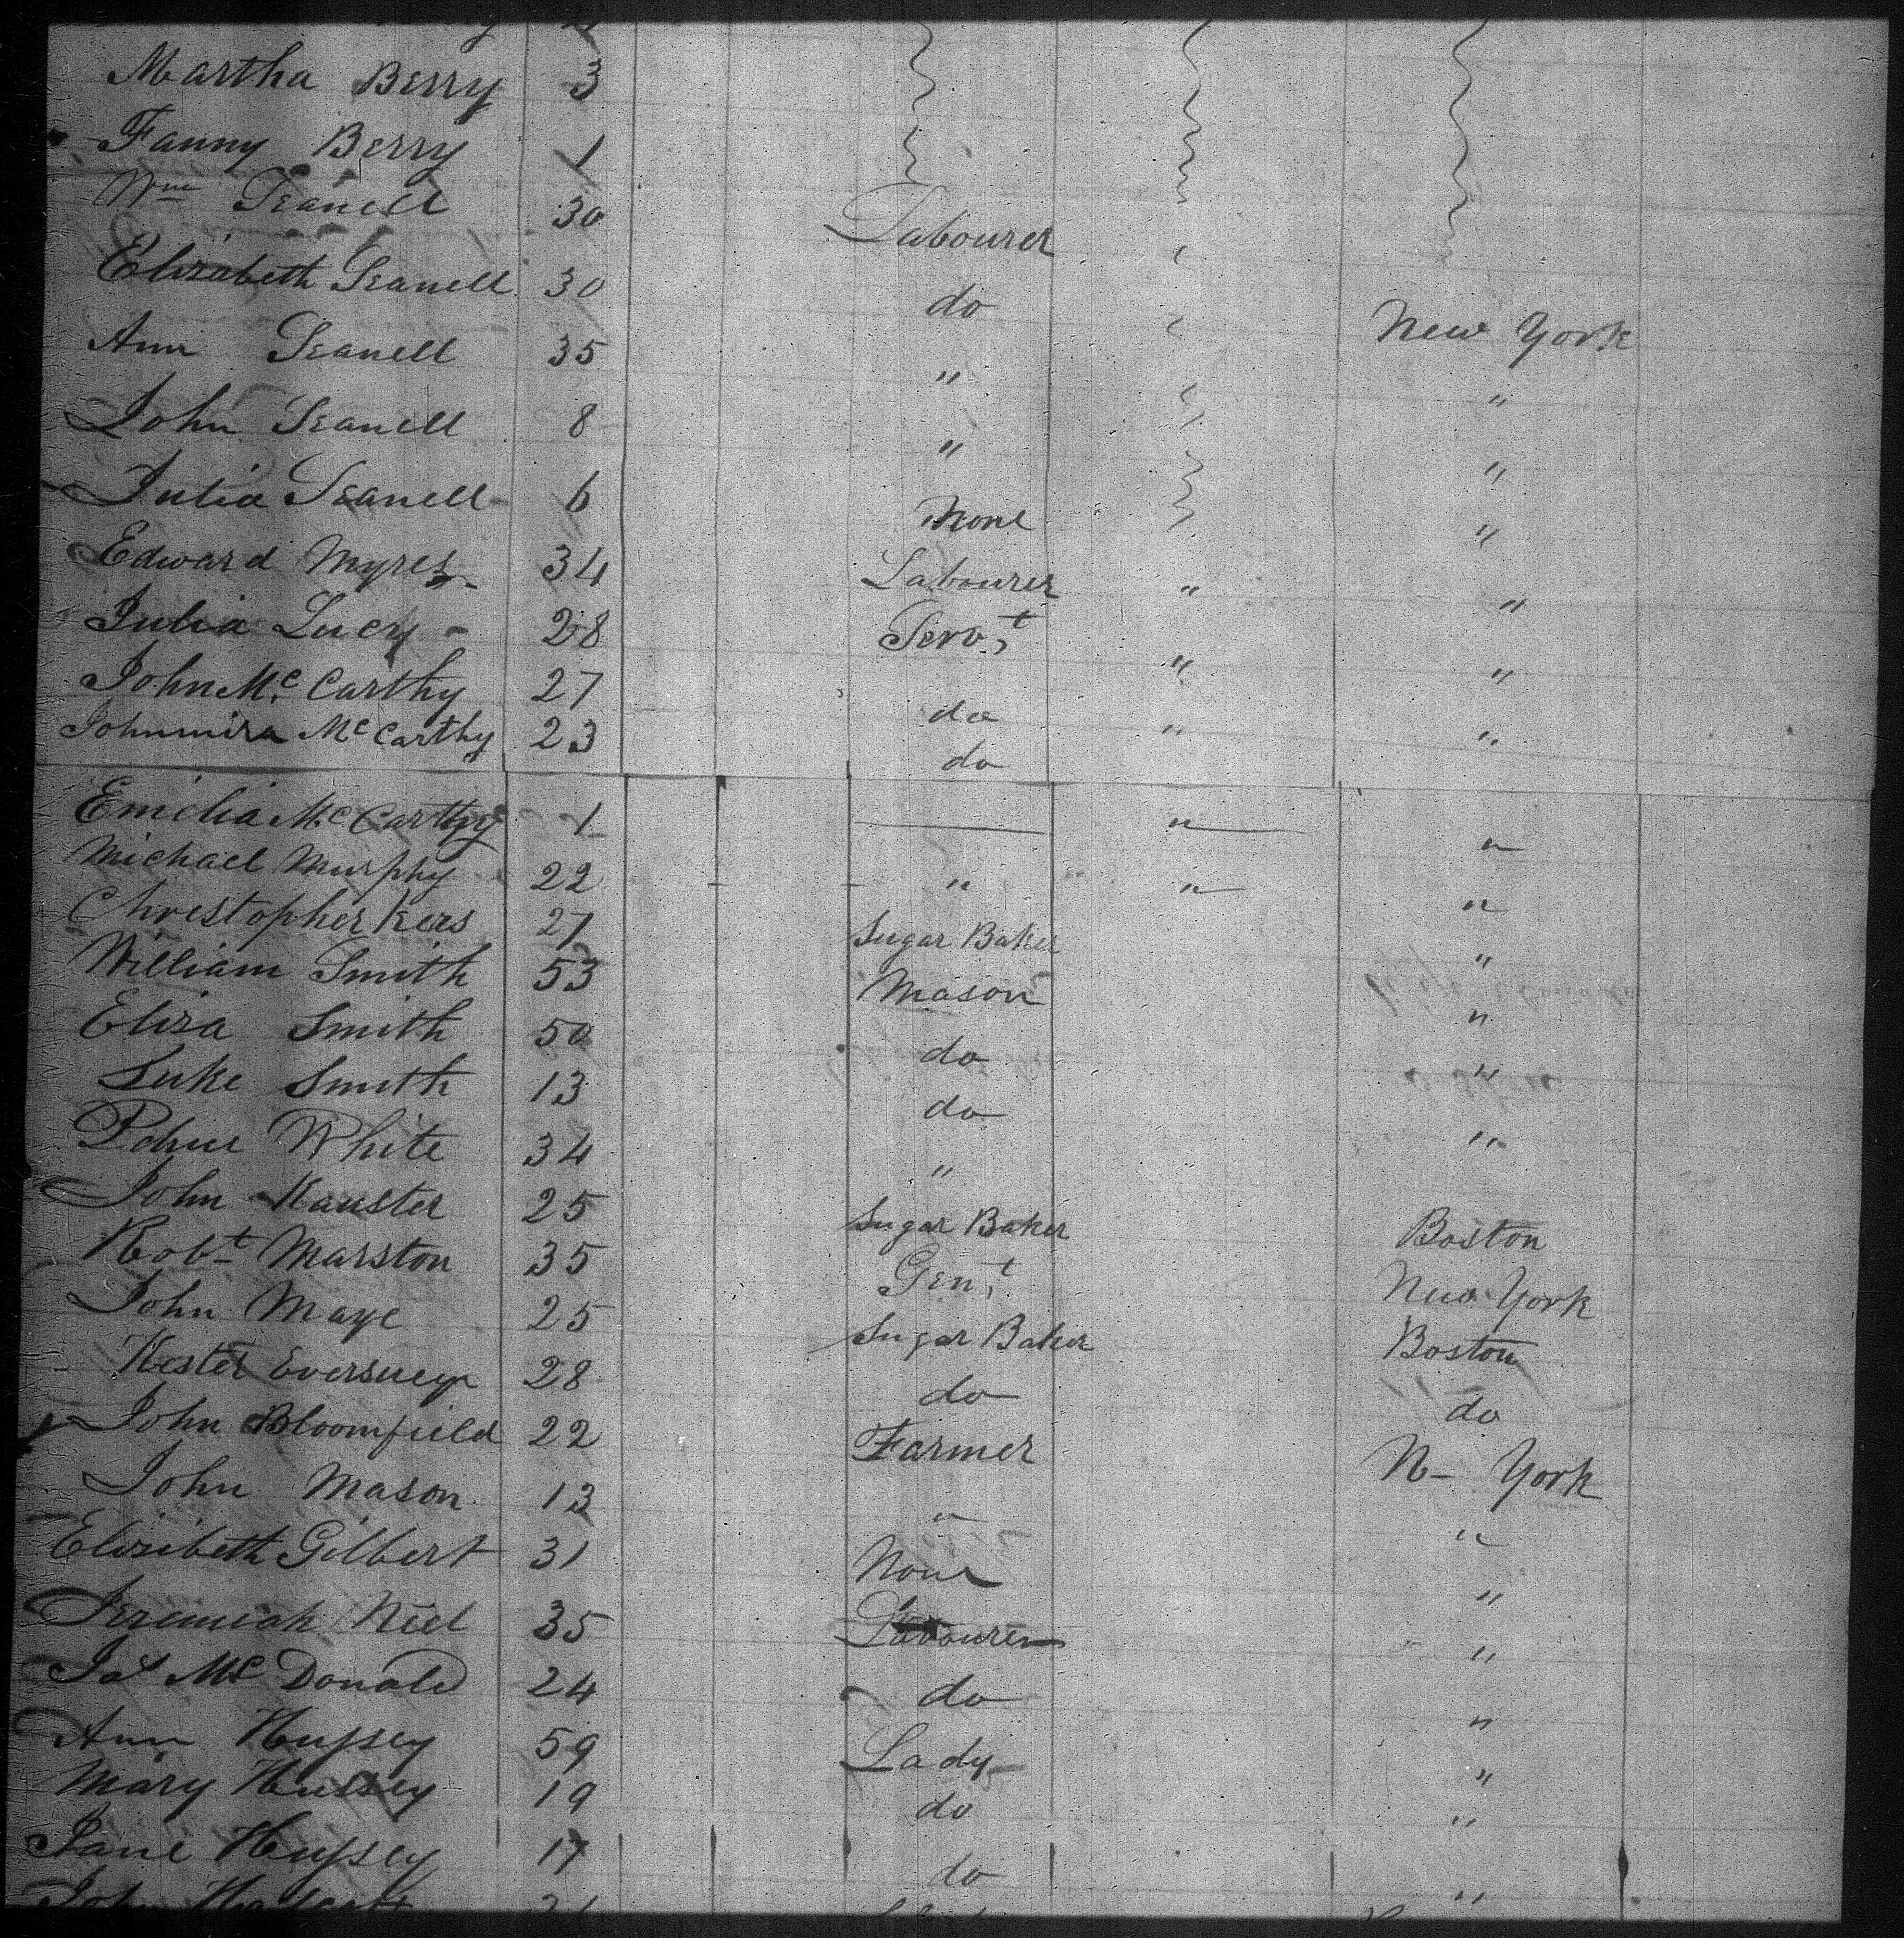 Martha Berry 3
Fanny Berry 1
Wm Seanell 30 Labourer
Elizabeth Seanell 30 do New York
Ann Seanell 35 " "
John Seanell 8 " "
Julia Seanell 6 None "
Edward Myres 34 Labourer " "
Julia Lucy 28 Servt " "
John Mc Carthy 27 do " "
Johnmira Mc Carthy 23 do
Emelia Mc Carthy 1 " "
Michael Murphy 22 " " "
Christopher Kers 27 Sugar Baker "
William Smith 53 Mason "
Eliza Smith 50 do "
Luke Smith 13 do "
White 34 "
John Kauster 25 Sugar Baker Boston
Robt Marston 35 Gent New York
John Maye 25 Sugar Baker Boston
Kester 28 do do
John Bloomfield 22 Farmer N- York
John Mason 13 " "
Elizibeth Gilbert 31 None "
Jeremiah Niel 35 Labourer "
Jas Mc Donald 24 do "
Ann Hussey 59 Lady "
Mary Hussey 19 do "
Jane Hussey 17 do "
John